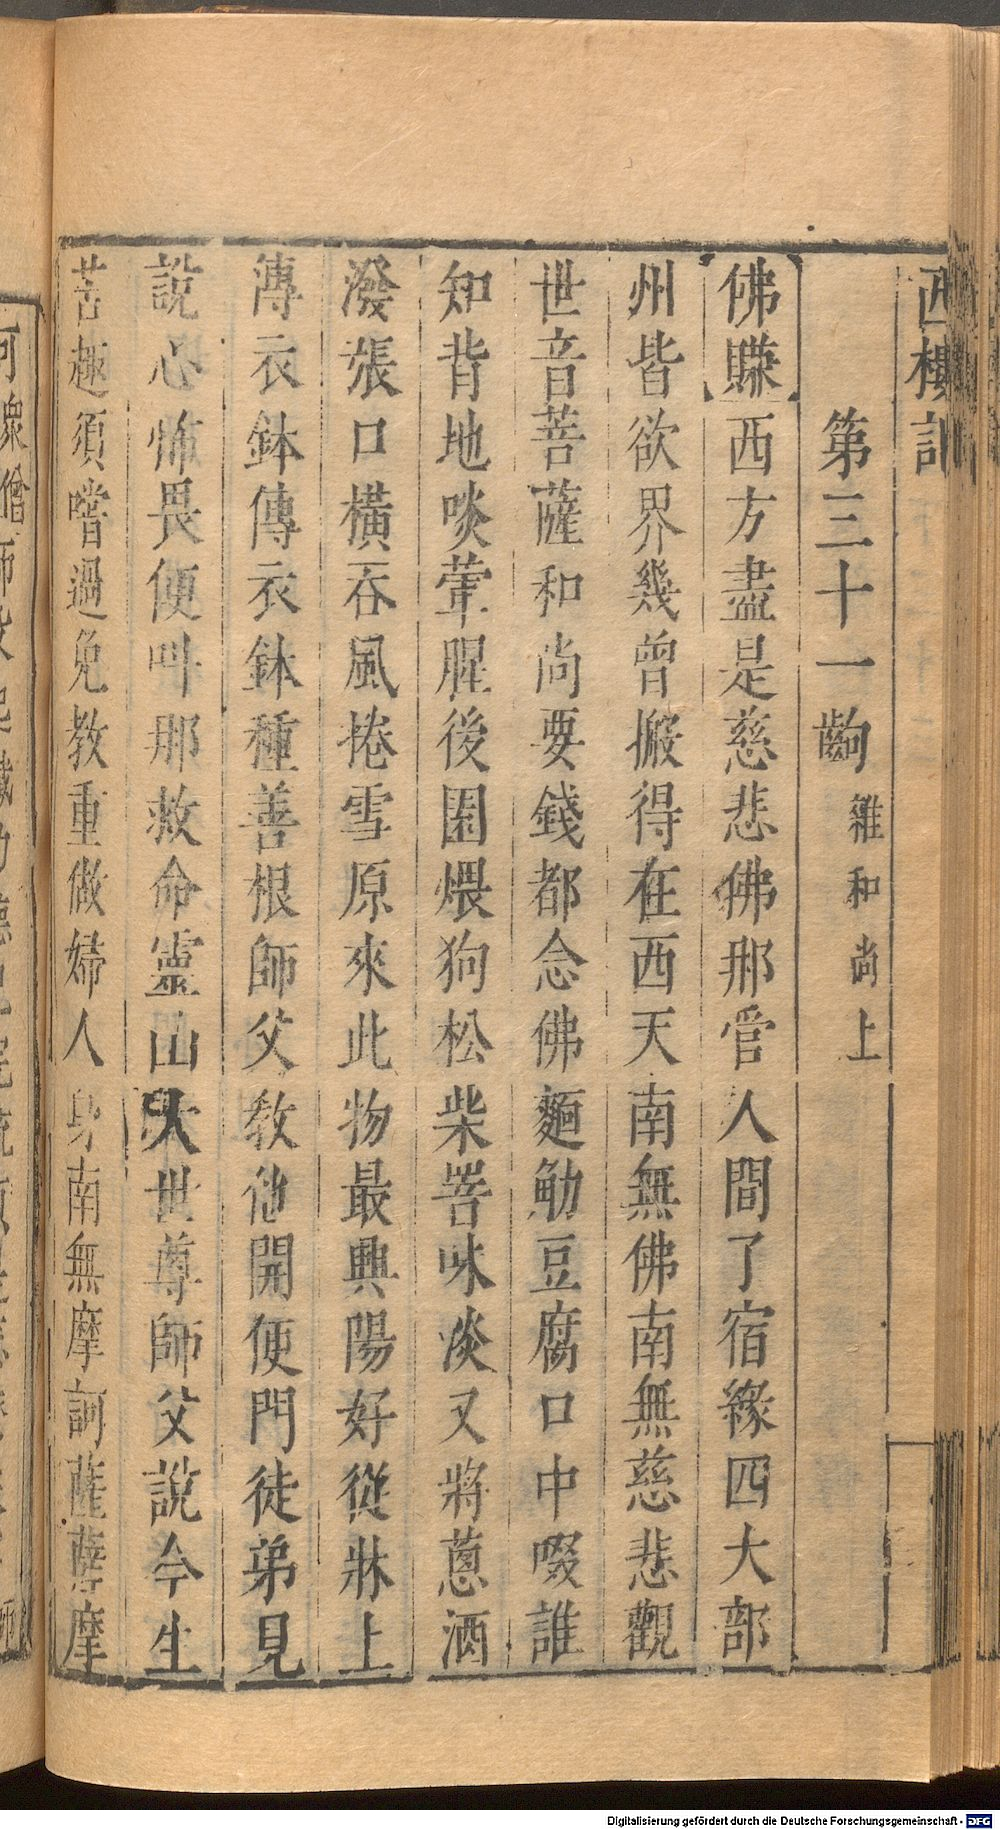 西樓記
第三十一齣 雜和尚上
佛賺西方盡是慈悲佛那管人間了宿緣四大部
州皆欲界幾曾搬得在西天南無佛南無慈悲觀
世音菩薩和尚要錢都念佛麵觔豆腐口中啜誰
知背地啖葷腥後園煨狗松柴罟味淡又將蔥酒
潑張口橫吞風捲雪原來此物最興陽好從牀上
傳衣鉢傳衣鉢種善根師父教他開便門徒弟見
說心怖畏便叫那救命靈山大世尊師父說今生
苦趣須嚐過免教重做婦人身南無摩訶薩薩摩
Digitalisierung gefördert durch die Deutsche Forschungsgemeinschaft - DFG